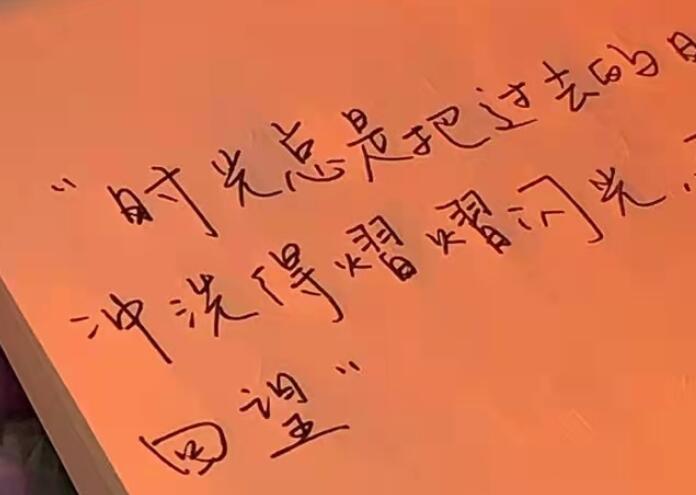 “时光总是把过去的
冲洗得熠熠闪光
回望”